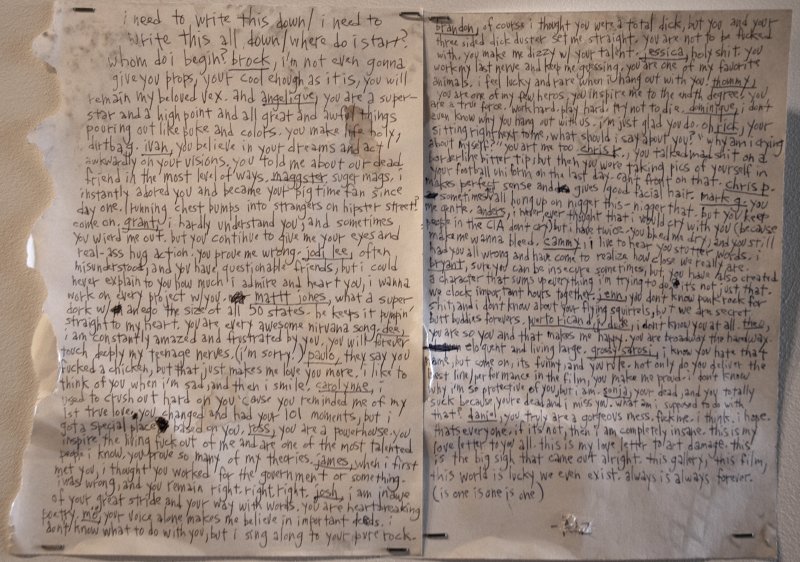 i need to write this down/i need to
write this all down/where do i start?
whom do i begin? brock, i'm not even gonna
give you props, your cool enough as it is, you will
remain my beloved vex. and angelique, you are a super-
star and a high point and all great and things
pouring out like puke and colors. you make life holy,
dirtbag. ivan, you believe in your dreams and act
awkwardly on your visions. you told me about our dead
friend in the most level of ways. maggster suger mags, i
instantly adored you and became your big time fan since
day one. (running chest bumps into strangers on hipster street!
come on. grant, i hardly understand you, and sometimes
you wierd me out. but you continue to give me your eyes and
real-ass hug action. you prove me wrong. jodi lee, often
misunderstood, and you have questionable friends, but i could
never explain to you how much i admire and heart you, i wanna
work on every project w/you. mattt jones, what a super
dork w/ an ego the size of all 50 states. he keeps it pumpin'
straight to my heart. you are every awesome nirvana song. dee,
i am constantly amazed and frustrated by you. you will forever
touch deeply my teenage nerves. (i'm sorry.) paulo, they say you
fucked a chicken, but that just makes me love you more. i like to
think of you when i'm sad, and then i smile. carolynne, i
used to crush out hard on you cause you reminded me of my
1st true love. you changed and had your 101 moments, but i
got a special place based on you. ross, you are a powerhouse. you
inspire the living fuck out of me and are one of the most talented
people i know. you prove so many of my theories. james, when i first
met you, i thought you worked for the government or something.
i was wrong, and you remain right. right. right. josh, i am in awe
of your great stride and your way with words. you are heartbreaking
poetry. me, your voice alone makes me believe in important deeds. i
dont know what to do with you, but i sing along to your pure rock.
brandon, of course i thought you were a total dick, but you and your
three sided dick duster set me straight. you are not to be fucked
with. you make me dizzy w/ your talent. jessica, holy shit. you
work my last nerve and keep me guessing. you are one of my favorite
animals. i feel lucky and rare when i hang out with you. thommy,
you are one of my few heros. you inspire me to the enth degree. you
are a true force. work hard. play hard. try not to die. dominique, i don't
even know why you hang out with us. i'm just glad you do. oh rick, your
sitting right next to me, what should i say about you? why am i crying
about myself? you art me too. chris k., you talked mad shit on a
borderline bitter tip, but then you were taking pics of yourself in
your football uniform on the last day. cant front on that. chris p.
makes perfect sense and gives good facial hair. mark g. you
sometimes all hung up on nigger this - nigger that. but you keep
me centre. anders, i never ever thought that i would cry with you (because
people in the CIA dont cry) but i have twice. you bled me dry, and you still
make me wanna bleed. cammy, i live to hear you stutter words. i
had you all wrong and have come to realize how close we really are.
bryant, sure you can be insecure sometimes, but you have also created
a character that sums up everything i'm trying to do. its not just that.
we clock important hours together. jenn, you dont know punk rock for
shit, and i dont know about your flying squirrels, but we are secret
butt buddies forevers. puerto rican dude, i dont know you at all. thew,
you are so you and that makes me happy. you are broadway the hard way.
eloquent and living large. gross sarosi, i know you hate that
name, but come on, its funny, and you rule. not only do you deliver the
best line/performance in the film, you make me proud. i don't know
why i'm so protective of you, but i am. sonja, your dead, and you totally
suck because you're dead and i miss you. what am i supposed to do with
that? daniel, you truly are a gorgeous mess. fuck me. i think. i hope.
thats everyone. if its not, then i am completely insane. this is my
love letter to you all. this is my love letter to art damage. this
is the big sigh that came out alright. this gallery, this film,
this world is lucky we even exist. always is always forever.
(is one is one is one)